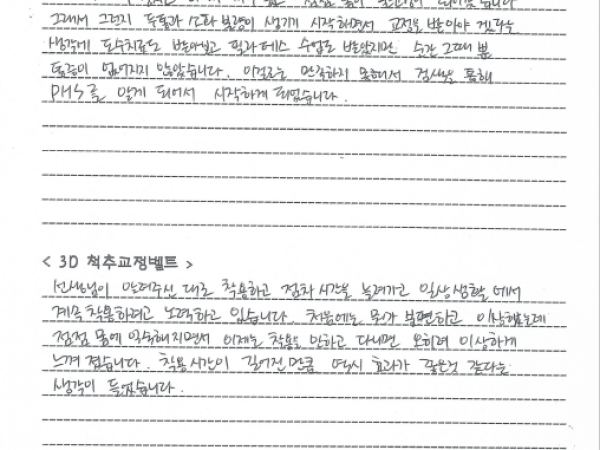 그래서 그런지 두통과 소화 불량이 생기게 시작하면서 교정을 받아야 겠다는
생각에 도수치료도 받아보고 필라테스 수업도 받았지만 순간 그때 뿐
통증이 없어지지 않았습니다. 이걸로는 만족하지 못해서 검색을 통해
PHS를 알게 되어서 시작하게 되었습니다.
< 3D 척추교정벨트 >
선생님이 알려주신 대로 착용하고 점차 시간을 늘려가고 일상생활에서
계속 착용하려고 노력하고 있습니다. 처음에는 뭔가 불편하고 이상했는데
점점 몸에 익숙해지면서 이제는 착용을 안하고 다니면 오히려 이상하게
느껴 졌습니다. 착용시간이 길어진 만큼 역시 효과가 좋은것 같다는
생각이 들었습니다.